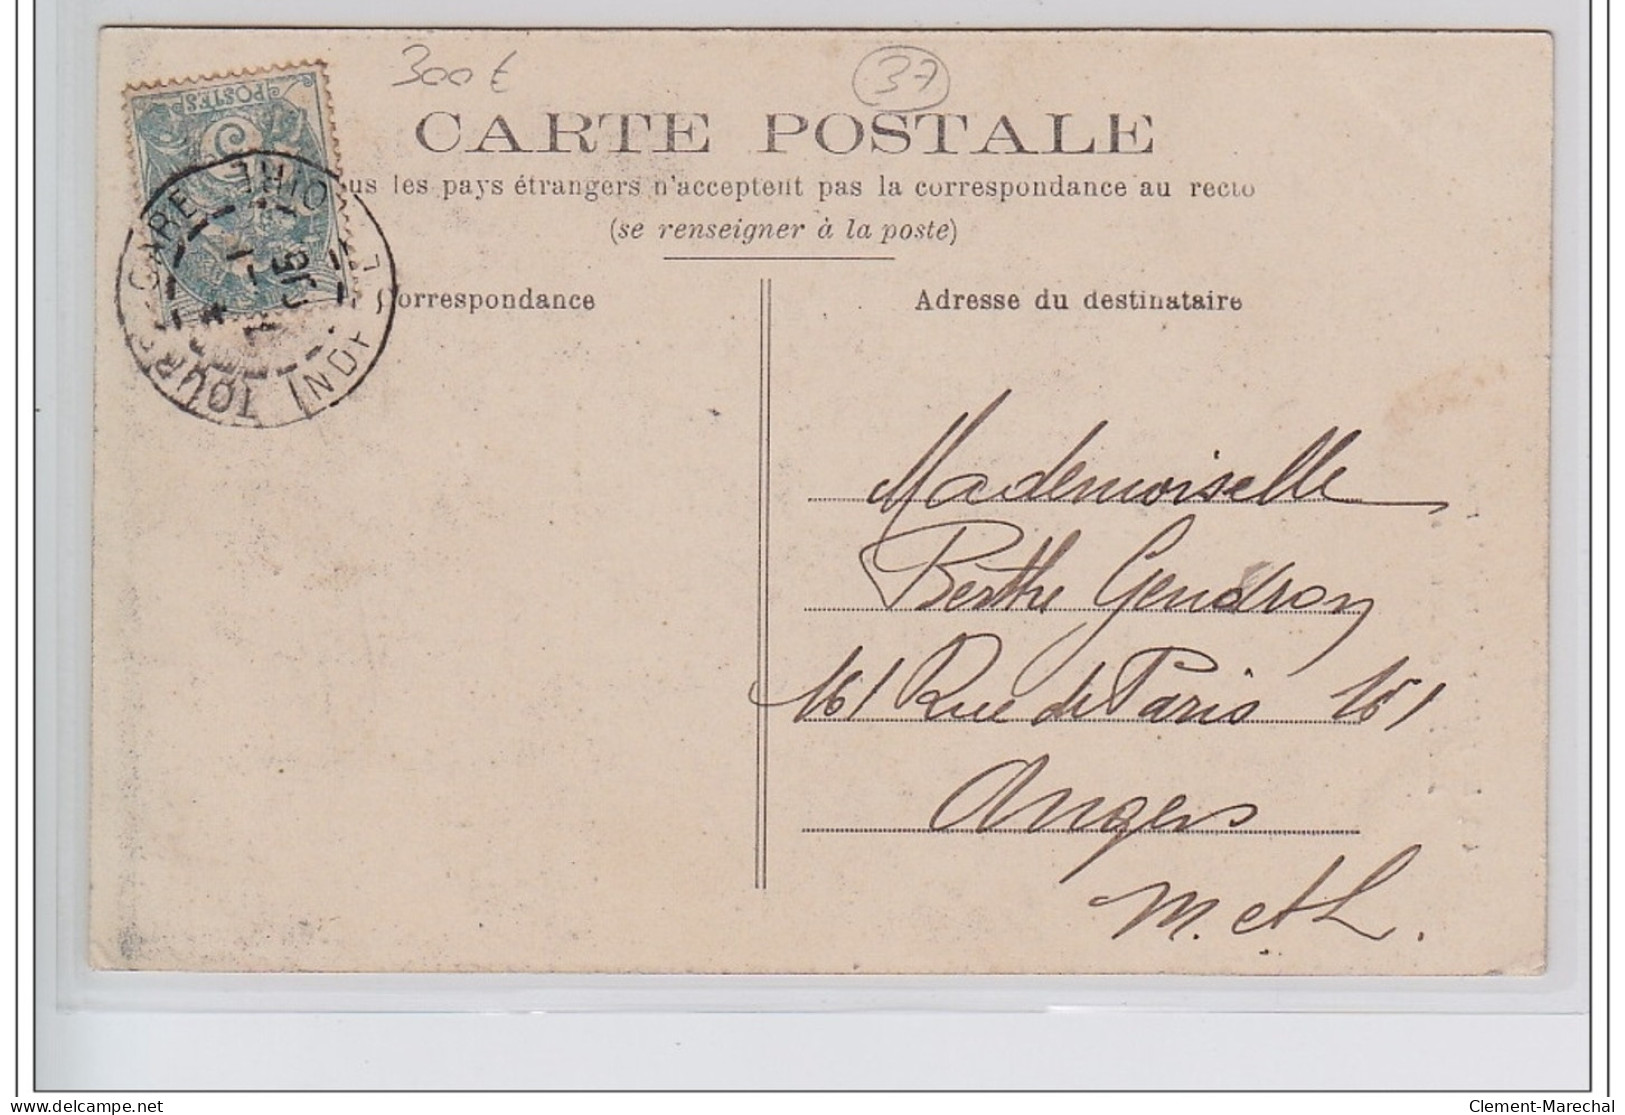 300€
37
POSTES
5
CARTE POSTALE
us les pays étrangers n'acceptent pas la correspondance au recto
(se renseigner à la poste)
Correspondance
Adresse du destinataire
TOURS-GARE
INDRE-ET-LOIRE
Mademoiselle
Berthe Gendron
161 Rue de Paris 161
Angers
M. et L.
Clement-Marechal